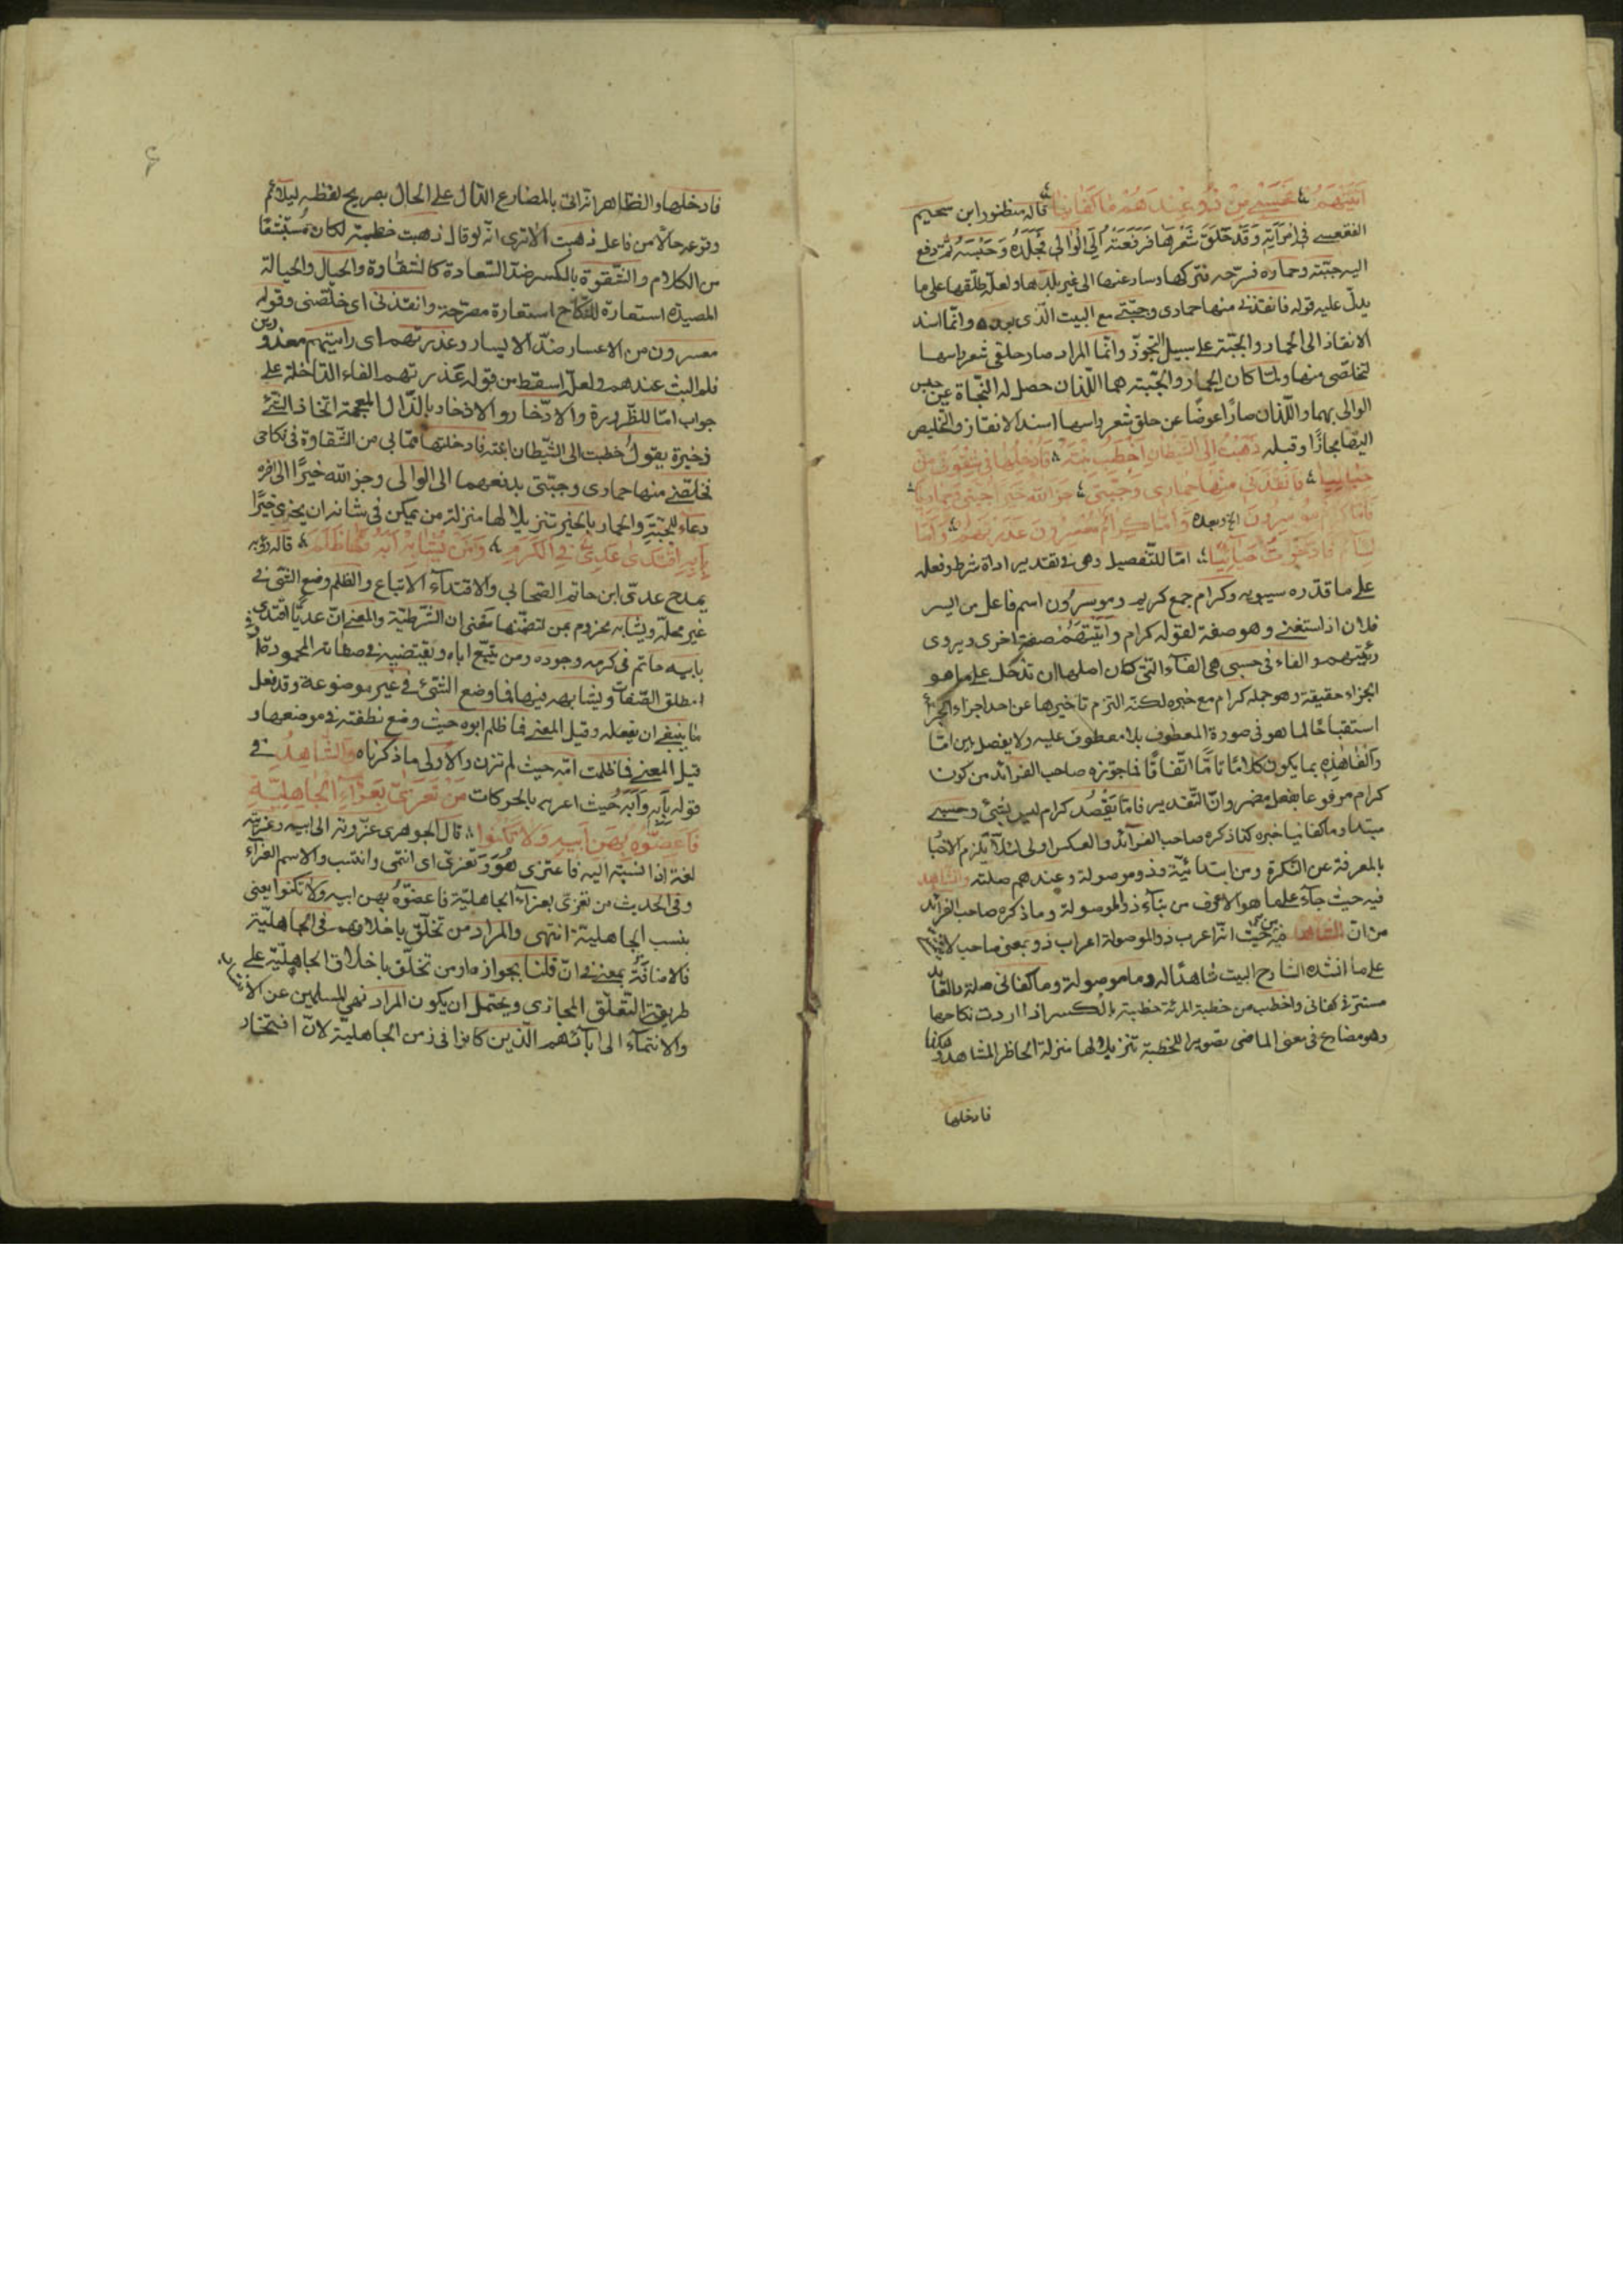 اتيتهم فحسبى من ذو عندهم ما كفانيا قاله منظور ابن سحيم
الفقعسى فى امرأته وقد حلق شعرها فرفعته الى الوالى فجلده وحبسه ثم دفع
اليه جبّته وحماره فسرّحه فتركها وسار عنها الى غير بلدها ولعلّه طلّقها على ما
يدلّ عليه قوله فانقذنى منها حمارى وجبّتى مع البيت الّذى بعده وانّما اسند
الانقاذ الى الحمار والجبّة على سبيل التجوّز وانّما المراد صار حلقى شعر راسها
لتخلّصى منها ولمّا كان الحمار والجبّة هما اللّذان حصل له النّجاة عن حبس
الوالى بهما واللّذان صارا عوضًا عن حلق شعر راسها اسند الانقاذ والتخليص
اليهما مجازًا وقبله ذهبت الى الشيطان اخطب بنته فادخلها فى شقوتى من
حباليا فانقذنى منها حمارى وجبّتى جزا الله خيرا جبتى وحماريا
فامّا كرام موسرون الخ وبعده وامّا كرام معسرون عذرتهم وامّا
لئام فادّخرت حيائيا امّا للتّفصيل وهى فى تقدير اداة شرط وفعله
على ما قدّره سيبويه وكرام جمع كريم وموسرون اسم فاعل من ايسر
فلان اذا ستغنى وهو صفة لقوله كرام واتيتهم صفة اخرى ويروى
رئيتهم والفاء فى حسبى هى الفاء التى كان اصلها ان تدخل على ما هو
الجزاء حقيقة وهو جملة كرام مع خبره لكنّه التزم تاخيرها عن احد اجزاء الجزأ
استقباحًا لما هو فى صورة المعطوف بلا معطوف عليه ولا يفصل بين امّا
والفاء هذه بما يكون كلامًا تامًّا اتّفاقًا فما جوّزه صاحب الفرائد من كون
كرام مرفوعا بفعل مضمر وانّ التّقدير فامّا يقصد كرام ليس بشئ وحسبى
مبتدا وما كفانيا خبره كذا ذكره صاحب الفرآئد والعكس اولى لئلّا يلزم الاخبا
بالمعرفة عن النّكرة ومن ابتدائيّة وذو موصولة وعندهم صلته والشاهد
فيه حيث جآء على ما هو الاعرف من بنآء ذو الموصولة وما ذكره صاحب الفرائد
من انّ الشاهد فيه حيث انّه اعرب ذو الموصولة اعراب ذو بمعنى صاحب
على ما انشده الشارح البيت شاهدًا له وما موصولة وما كفانى صلته والعائد
مستتر فى كفانى واخطب من خطبة المرئة خطبة بالكسر اذا اردت نكاحها
وهو مضارع فى معنى الماضى تصويرا للخطبة تنزيلا لها منزلة الحاظر المشاهد
فادخلها
فادخلها والظاهر انّه اتى بالمضارع الدّال على الحال بصريح لفظه ليلائم
وقوعه حالًا من فاعل ذهبت الا ترى انّه لو قال ذهبت خطبة لكان
من الكلام والشّقوة بالكسر ضدّ السّعادة كالشقاوة والحبال والحبالة
المصيدة استعارة للنّكاح استعارة مصرّحة وانقذنى اى خلّصنى وقوله
معسرون من الاعسار ضدّ الايسار وعذرتهم اى رايتهم معذورين
فلم البث عندهم ولعلّه اسقط من قوله عذرتهم الفاء الدّاخلة على
جواب امّا للضّرورة والادّخار والاذخار بالذّال المعجمة اتخاذ الشئ
ذخيرة يقول خطبت الى الشّيطان ابنته فادخلتها ممّا بى من الشّقاوة فى نكاحى
فخلّصنى منها حمارى وجبّتى بدفعهما الى الوالى وجزا الله خيرًا الى اخره
دعاء للجبّة والحمار بالخير تنزيلا لها منزلة من يمكن فى شانه ان يجزى خيرًا
بابه اقتدى عدىّ فى الكرم ومن يشابه ابه فما ظلم قاله رؤبه
يمدح عدىّ ابن حاتم الصّحابى والاقتدآء الاتباع والظلم وضع الشّئ فى
غير محلّه ويشابه مجزوم بمن لتضمّنها معنى ان الشّرطيّة والمعنى انّ عديًّا اقتدى
بابيه حاتم فى كرمه وجوده ومن يتّبع اباه ويقتضيه فى صفاته المحمودة
مطلق الصّفات ويشابهه فيها فما وضع الشّئ فى غير موضوعه وقد فعل
ما ينبغى ان يفعله وقيل المعنى فما ظلم ابوه حيث وضع نطفته فى موضعها و
قيل المعنى فما ظلمت امّه حيث لم تزن والاولى ما ذكرناه والشّاهد فى
قوله بابه وابه حيث اعربه بالحركات من تعزّى بعزاء الجاهليّة
فاعضّوه بهن ابيه ولا تكنوا قال الجوهرى عزوته الى ابيه وعزيته
لغة اذا نسبته اليه فاعتزى هو وتعزّى اى انتمى وانتسب والاسم العزآء
وفى الحديث من تعزّى بعزآء الجاهليّة فاعضّوه بهن ابيه ولا تكنوا يعنى
بنسب الجاهلية انتهى والمراد من تخلّق باخلاقهم فى الجاهليّة
فالاضافة بمعنى فى ان قلنا بجوازه او من تخلّق باخلاق الجاهليّة على
طريقة التّعلّق المجازى ويحتمل ان يكون المراد نهى المسلمين عن
والانتمآء الى ابآئهم الّذين كانوا فى زمن الجاهليّة لانّ افتخار